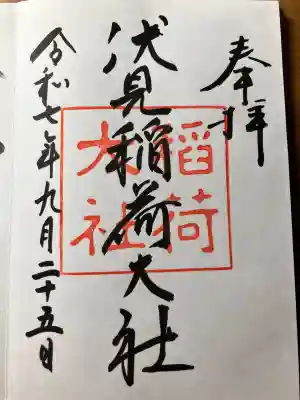 奉拝
伏見稲荷大社
稲荷
大社
令和七年九月二十五日